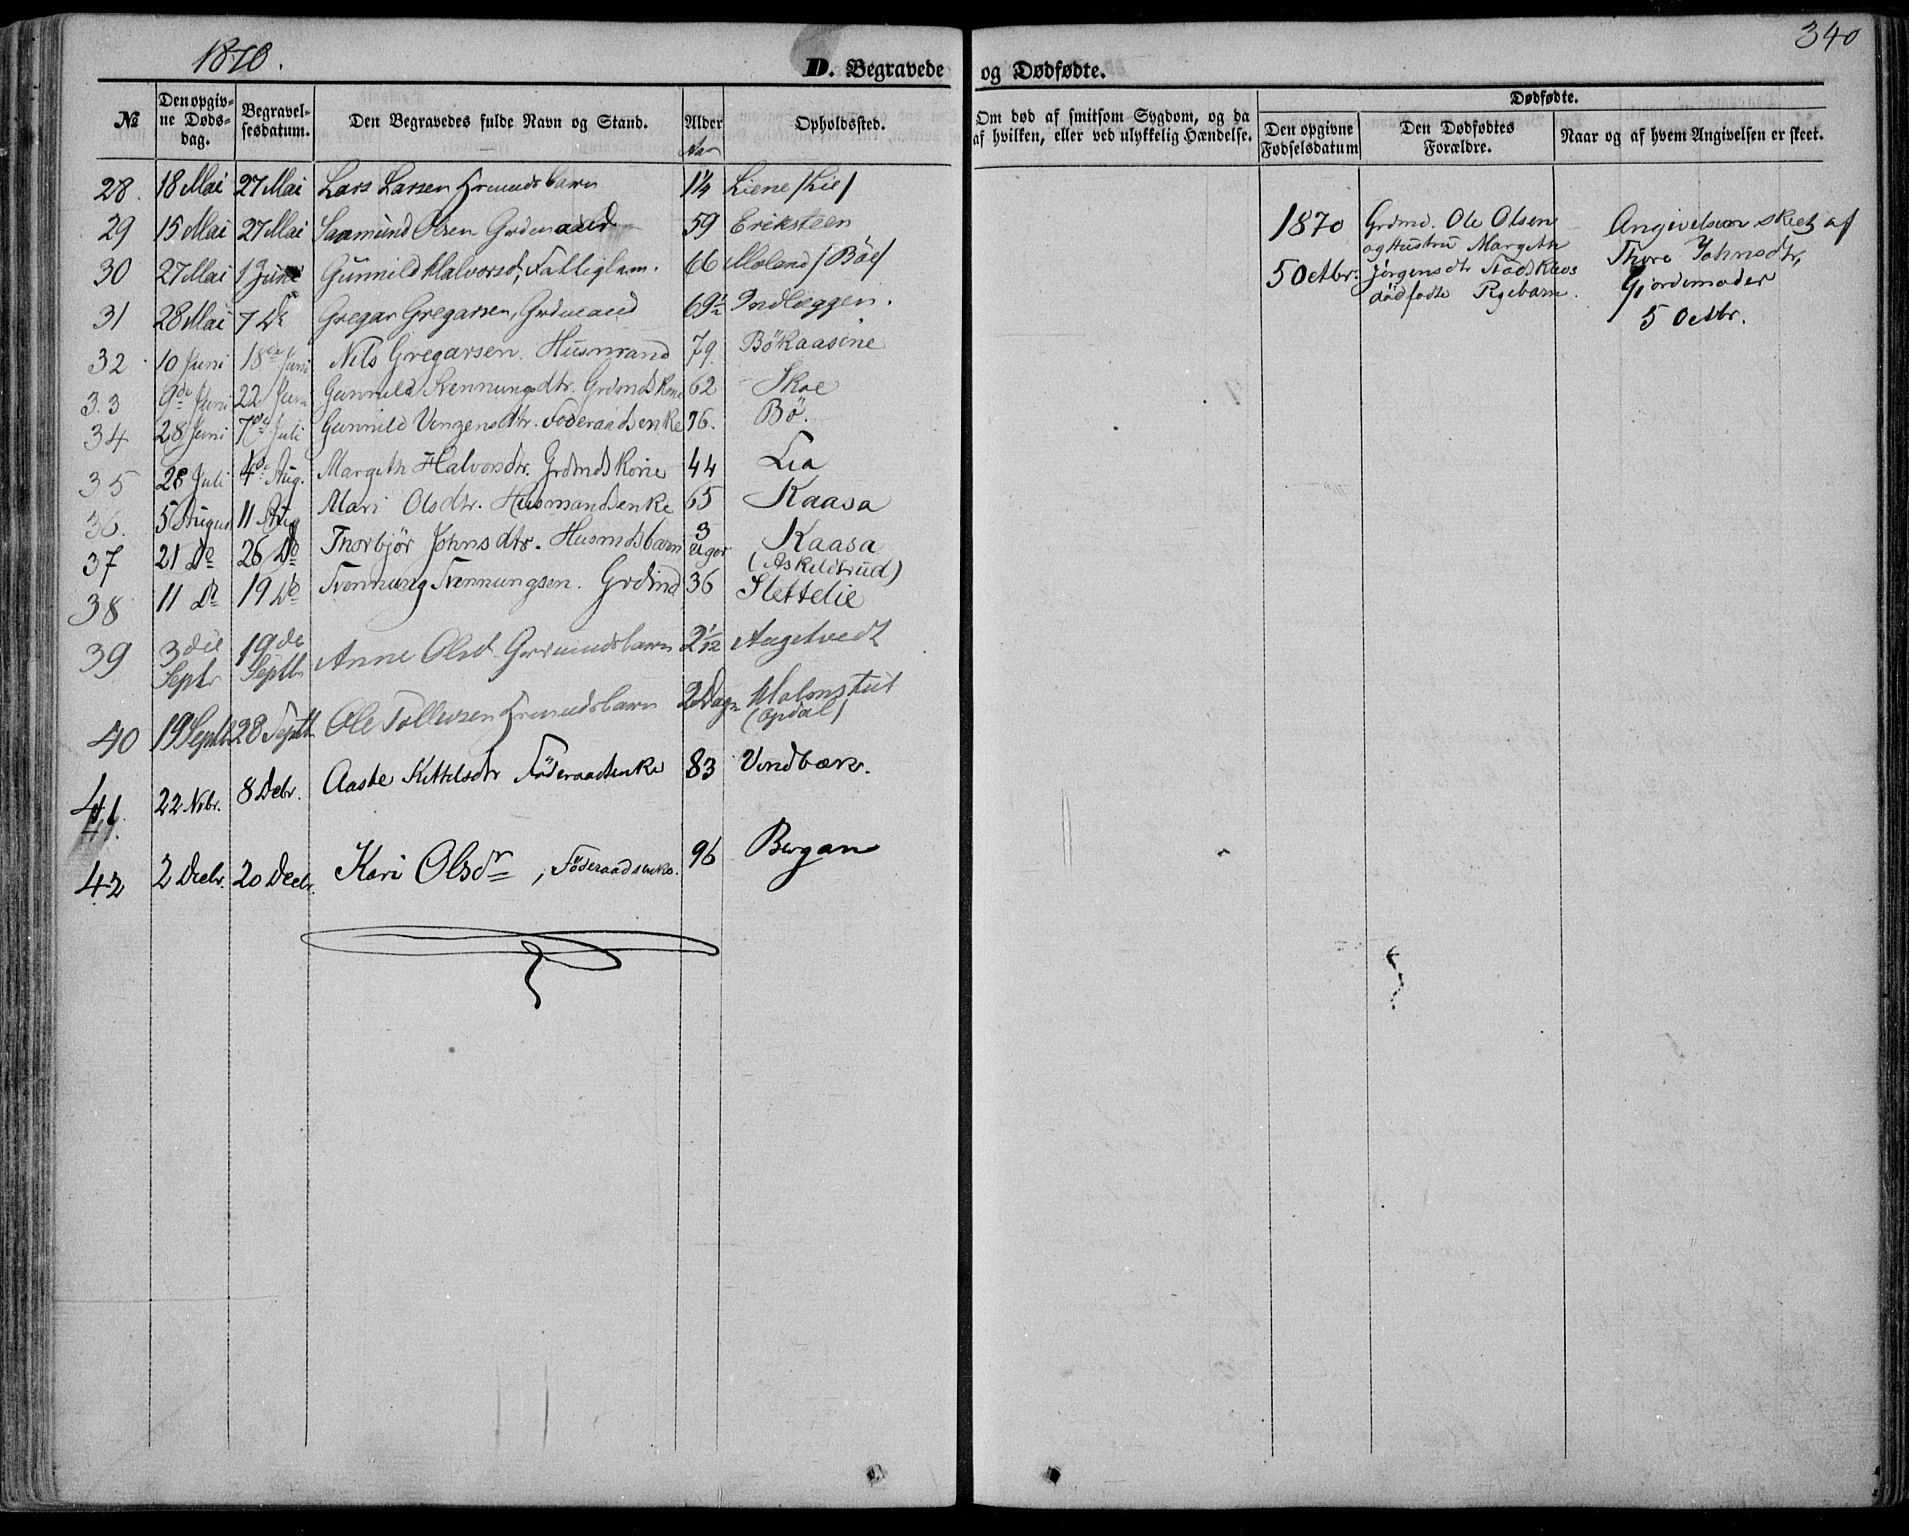 1870.
D. Begravede og Dødfødte.
340
№ Den opgivne Dødsdag. Begravelsesdatum. Den Begravedes fulde Navn og Stand. Alder Opholdssted. Om død af smitsom Sygdom, og da af hvilken, eller ved ulykkelig Hændelse. Dødfødte. Den opgivne Fødselsdatum Den Dødfødtes Forældre. Naar og af hvem Angivelsen er skeet.
Aar
28. 18 Mai 27 Mai Lars Larsen Grmandsbarn 1¼ Liene /Lie/
29 15 Mai 27 Mai Saamund Olsen Grdmand 59 Eriksteen
30 27 Mai 1 Juni Gunnild Halvorsd, Fattiglem. 66 Moland /Böe/
31 28 Mai 7 Do Gregar Gregarsen, Grdmand 69½ Indlæggen.
32 10 Juni 18de Juni Nils Gregarsen. Husmand 79. Bökaasine
33 9de Juni 22 Juni Gunnild Svennungsdtr. Grdmds Kone 62 Skoe
34 28 Juni 7de Juli Gunnild Vinzensdtr. Föderaadsenke 76. Bö.
35 28 Juli 4de Aug. Margith Halvorsdtr. Grdmds Kone 44 Lia
36. 5 August 11 Aug Mari Olsdtr. Husmandsenke 65 Kaasa
37 21 Do 26 Do Thorbjør Johnsdtr. Husmdsbarn 3 Uger Kaasa
(Askildtrud)
38 11 Do 19 Do Svennung Svennungsen. Grdmd 36 Slettelie
39 3die Septr 19de Septb Anne Olsd Grdmandsbarn 2 1/12 Aagetvedt
40 19 Septb 28 Septb Ole Tollefsen Grmandsbarn 2 Dage
(Opdal)
41. 22 Nvbr. 8 Debr. Aaste Kittilsdtr Föderaadsenke 83 Vindbæk.
41.
42 2 Decbr. 20 Decbr. Kari Olsdr, Föderaadsenke. 96 Bergan
1870
5 Octbr.
Grdmd. Ole Olsen
og Hustru Margith
Jørgensdtr Stadsklevs
dødfødte Pigebarn.
Angivelsen skeet af
Thore Johnsdtr,
Gjordemoder
5 Octbr.